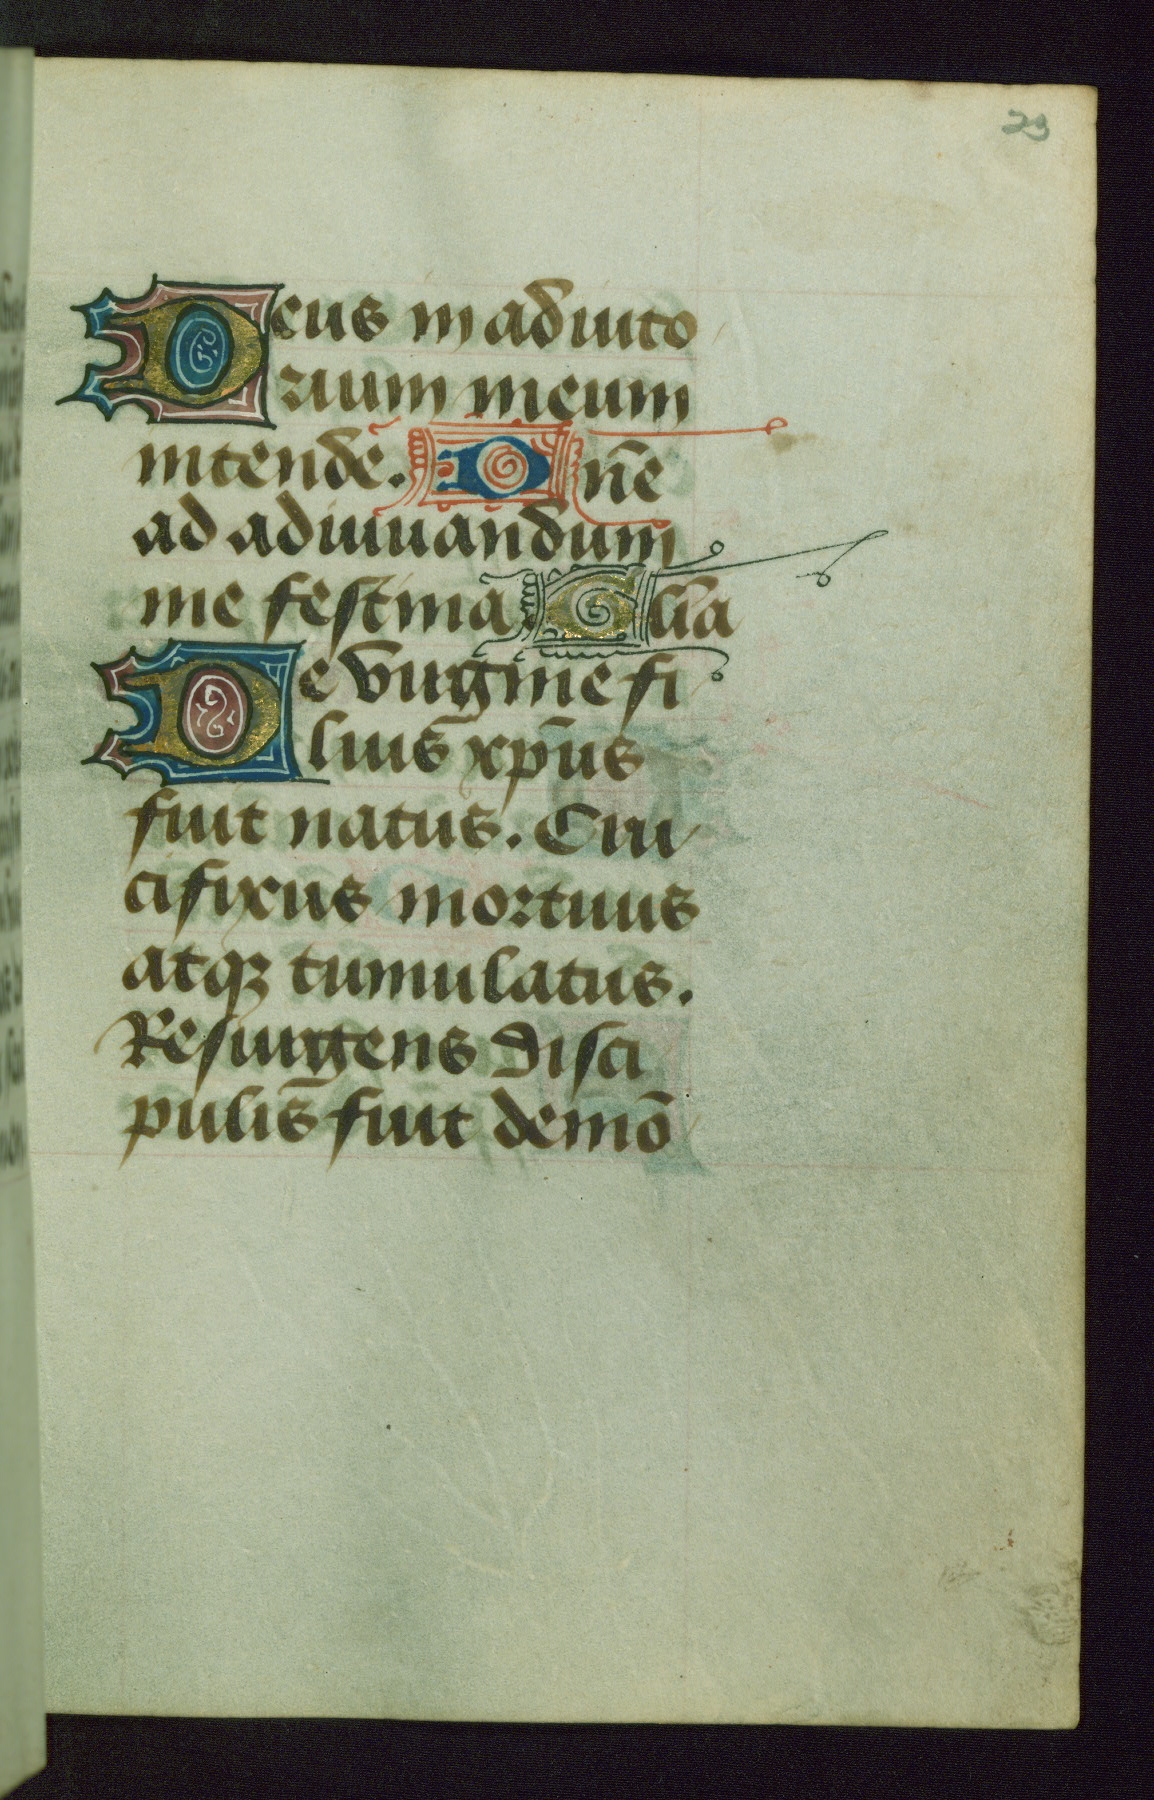 23
Deus in adiuto
rium meum
intende. Dn̄e
ad adiuuandum
me festina. Gl̄ia
De virgine fi
lius xp̄us
fuit natus. Cru
cifixus mortuus
atqꝫ tumulatus.
Resurgens disci
pulis fuit demō